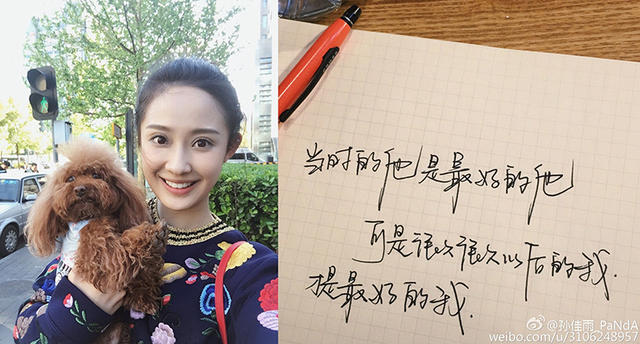 当时的他是最好的他
可是很久很久以后的我.
才是最好的我.
@孙佳雨_PaNdA
weibo.com/u/3106248957